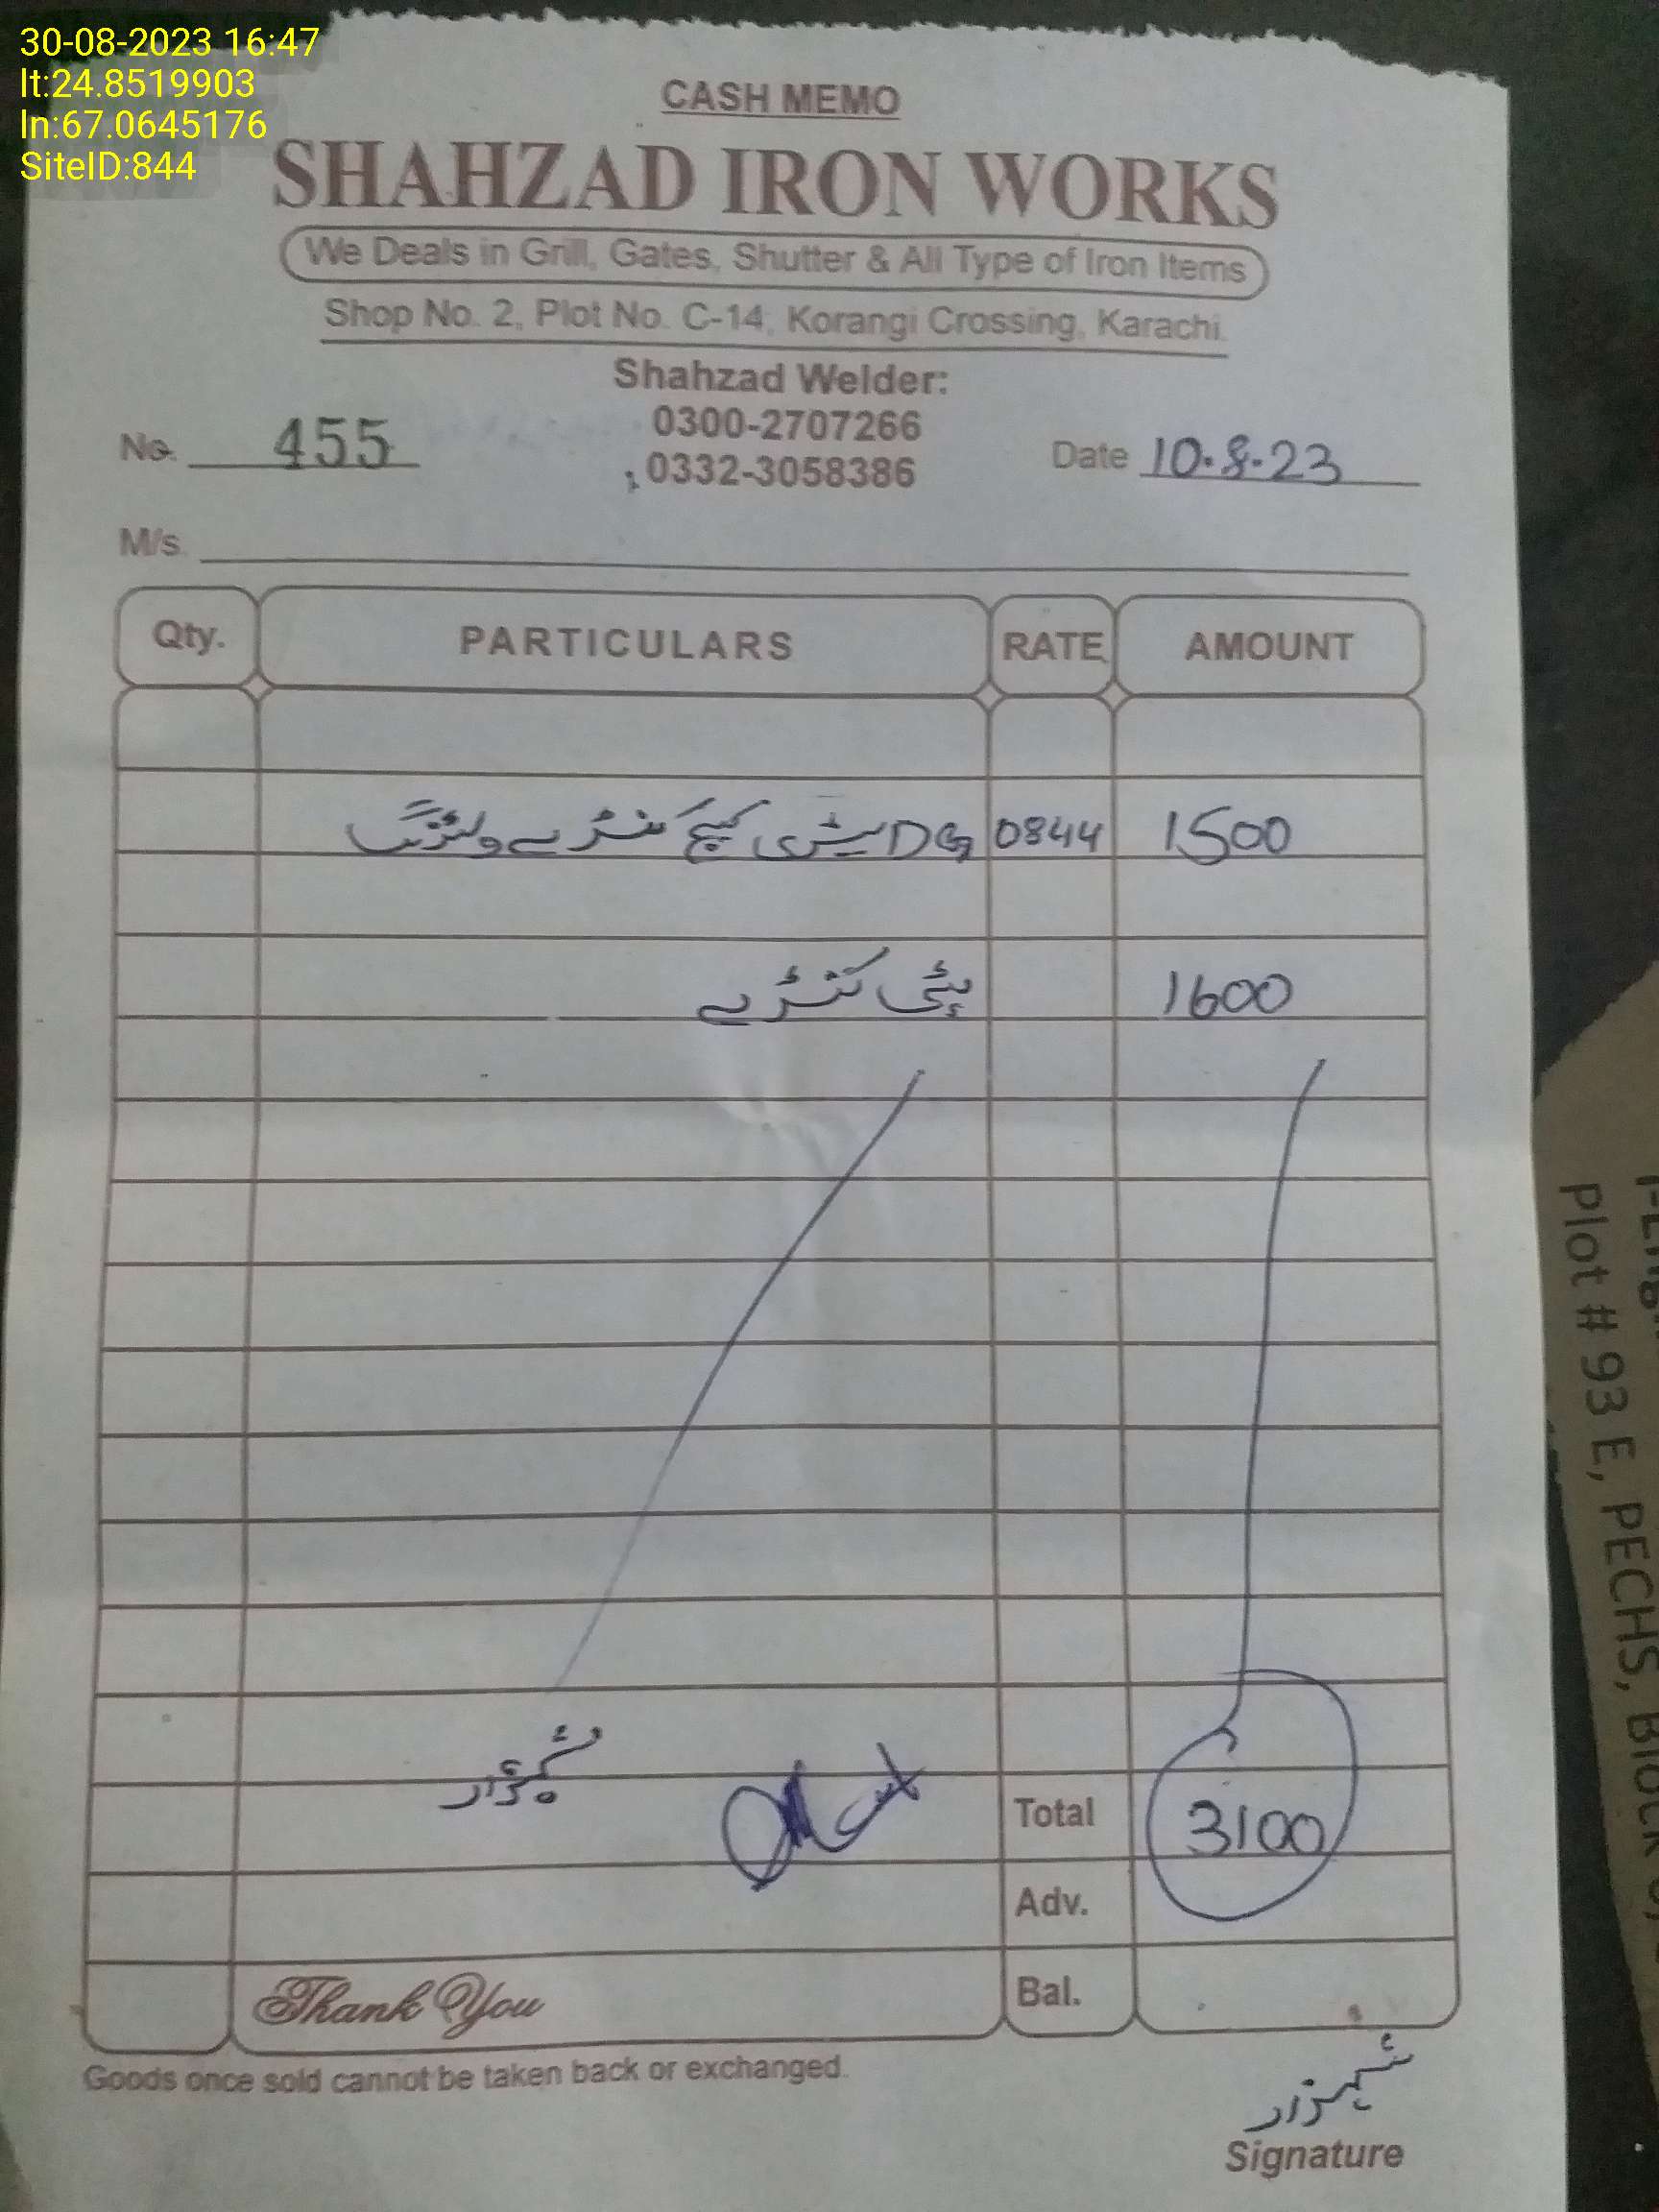 30-08-2023 16:47
lt:24.8519903
ln:67.0645176
SiteID:844
CASH MEMO
SHAHZAD IRON WORKS
We Deals in Grill, Gates, Shutter & All Type of Iron Items
Shop No. 2, Plot No. C-14, Korangi Crossing, Karachi.
Shahzad Welder:
0300-2707266
0332-3058386
No. 455
Date 10.8.23
M/s.
Qty. PARTICULARS RATE AMOUNT
DG بیٹری کیج کنڈے ویلڈنگ 0844 1500
پٹی کنڈے 1600
شہزاد
Total 3100
Adv.
Thank You Bal.
Goods once sold cannot be taken back or exchanged.
شہزاد
Signature
Plot # 93 E, PECHS, Block